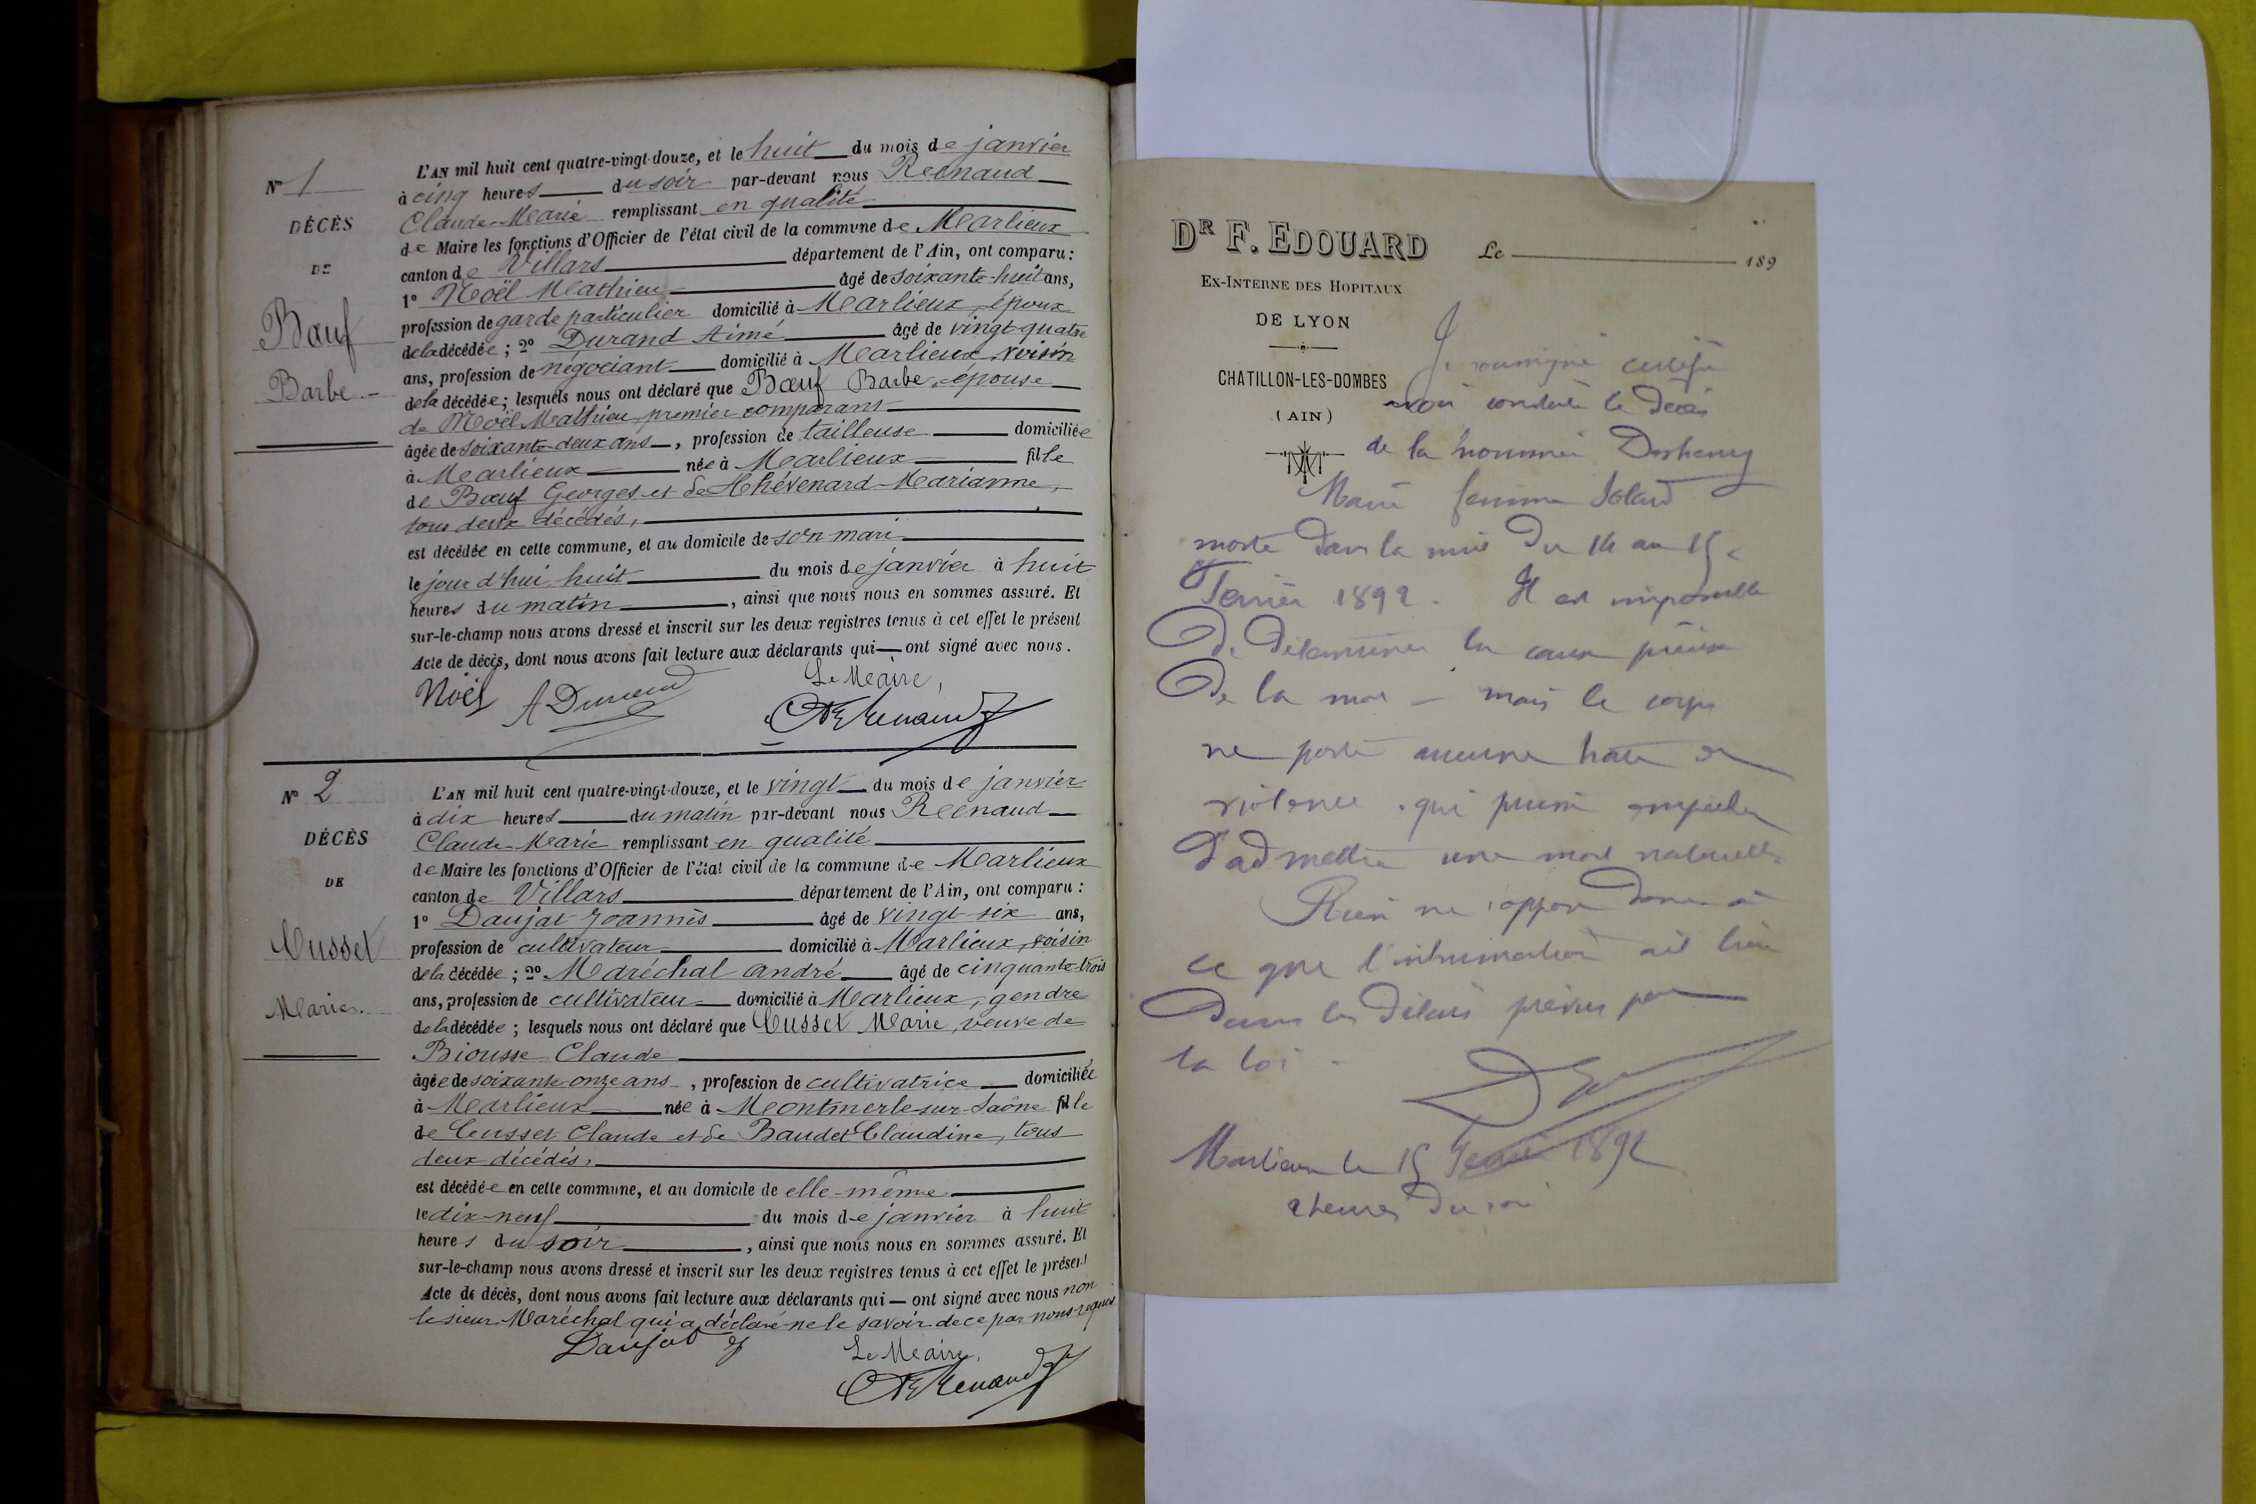 N° 1
DÉCÈS
DE
Bœuf
Barbe
L'AN mil huit cent quatre-vingt-douze, et le huit du mois de janvier
à cinq heures du soir par-devant nous Renaud
Claude-Marie remplissant en qualité
de Maire les fonctions d'Officier de l'état civil de la commune de Marlieux
canton de Villars département de l'Ain, ont comparu :
1° Noël Mathieu âgé de soixante-huit ans,
profession de garde particulier domicilié à Marlieux, époux
de la décédée ; 2° Durand Aimé âgé de vingt-quatre
ans, profession de négociant domicilié à Marlieux, voisin
de la décédée ; lesquels nous ont déclaré que Bœuf Barbe, épouse
de Noël Mathieu premier comparant
âgée de soixante-deux ans, profession de tailleuse domiciliée
à Marlieux née à Marlieux fille
de Bœuf Georges et de Thévenard Marianne,
tous deux décédés,
est décédée en cette commune, et au domicile de son mari
le jour d'hui huit du mois de janvier à huit
heures du matin, ainsi que nous nous en sommes assuré. Et
sur-le-champ nous avons dressé et inscrit sur les deux registres tenus à cet effet le présent
Acte de décès, dont nous avons fait lecture aux déclarants qui — ont signé avec nous.
Le Maire,
Noël A Durand Renaud
N° 2
DÉCÈS
DE
Cusset
Marie
L'AN mil huit cent quatre-vingt-douze, et le vingt du mois de janvier
à dix heures du matin par-devant nous Renaud
Claude-Marie remplissant en qualité
de Maire les fonctions d'Officier de l'état civil de la commune de Marlieux
canton de Villars département de l'Ain, ont comparu :
1° Daujat Joannès âgé de vingt-six ans,
profession de cultivateur domicilié à Marlieux, voisin
de la décédée ; 2° Maréchal André âgé de cinquante-trois
ans, profession de cultivateur domicilié à Marlieux, gendre
de la décédée ; lesquels nous ont déclaré que Cusset Marie, veuve de
Biousse Claude
âgée de soixante-onze ans, profession de cultivatrice domiciliée
à Marlieux née à Montmerle-sur-Saône fille
de Cusset Claude et de Baudet Claudine, tous
deux décédés,
est décédée en cette commune, et au domicile de elle-même
le dix-neuf du mois de janvier à huit
heures du soir, ainsi que nous nous en sommes assuré. Et
sur-le-champ nous avons dressé et inscrit sur les deux registres tenus à cet effet le présent
Acte de décès, dont nous avons fait lecture aux déclarants qui — ont signé avec nous non
le sieur Maréchal qui a déclaré ne le savoir de ce par nous requis
Daujat
Le Maire,
Renaud
DR F. EDOUARD
EX-INTERNE DES HOPITAUX
DE LYON
CHATILLON-LES-DOMBES
(AIN)
Le 189
Je soussigné certifie
avoir constaté le décès
de la nommée
Marie femme
morte dans la nuit du 14 au 15
Février 1892. Il est impossible
De Déterminer la cause précise
De la mort — mais le corps
ne porte aucune trace de
violence qui puisse empêcher
D'admettre une mort naturelle
Rien ne s'oppose donc à
ce que l'inhumation ait lieu
Dans les Délais prévus par
la loi.
Marlieux le 15 Février 1892
2 heures Du soir